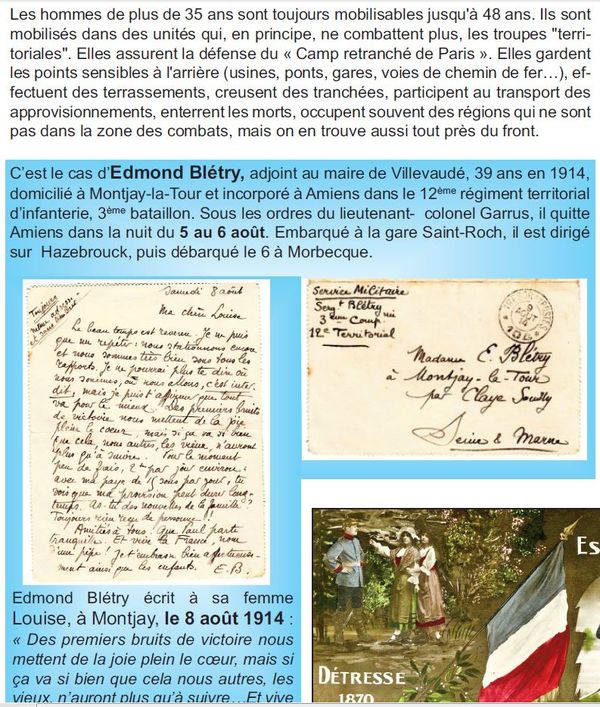 Les hommes de plus de 35 ans sont toujours mobilisables jusqu'à 48 ans. Ils sont
mobilisés dans des unités qui, en principe, ne combattent plus, les troupes "terri-
toriales". Elles assurent la défense du « Camp retranché de Paris ». Elles gardent
les points sensibles à l'arrière (usines, ponts, gares, voies de chemin de fer…), ef-
fectuent des terrassements, creusent des tranchées, participent au transport des
approvisionnements, enterrent les morts, occupent souvent des régions qui ne sont
pas dans la zone des combats, mais on en trouve aussi tout près du front.
C'est le cas d'Edmond Blétry, adjoint au maire de Villevaudé, 39 ans en 1914,
domicilié à Montjay-la-Tour et incorporé à Amiens dans le 12ème régiment territorial
d'infanterie, 3ème bataillon. Sous les ordres du lieutenant- colonel Garrus, il quitte
Amiens dans la nuit du 5 au 6 août. Embarqué à la gare Saint-Roch, il est dirigé
sur Hazebrouck, puis débarqué le 6 à Morbecque.
Samedi 8 août
Toujours
même adresse
Ma chère Louise
Le beau temps est revenu. Je ne puis
que me répéter : nous stationnons encore
et nous sommes très bien sous tous les
rapports. Je ne pourrai plus te dire où
nous sommes, où nous allons, c'est inter
dit, mais je puis t'affirmer que tout
va pour le mieux. Des premiers bruits
de victoire nous mettent de la joie
plein le cœur, mais si ça va si bien
que cela nous autres, les vieux, n'auront
plus qu'à suivre. Pour le moment
peu de frais, 2 f par jour environ :
avec ma paye de 15 sous par jour, tu
vois que ma provision peut durer long-
temps. As-tu des nouvelles de la famille ?
Toujours rien reçu de personne !!
Amitiés à tous. Que Paul parte
tranquille. Et vive la France, nom
d'une pipe ! Je t'embrasse bien affectueuse-
ment ainsi que les enfants. E. B.
Service Militaire
Sergt Blétry
3ème Comp.
12e Territorial
Madame E. Blétry
à Montjay-la-Tour
par Claye Souilly
Seine & Marne
Edmond Blétry écrit à sa femme
Louise, à Montjay, le 8 août 1914 :
« Des premiers bruits de victoire nous
mettent de la joie plein le cœur, mais si
ça va si bien que cela nous autres, les
vieux, n'auront plus qu'à suivre…Et vive
Es
DÉTRESSE
1870